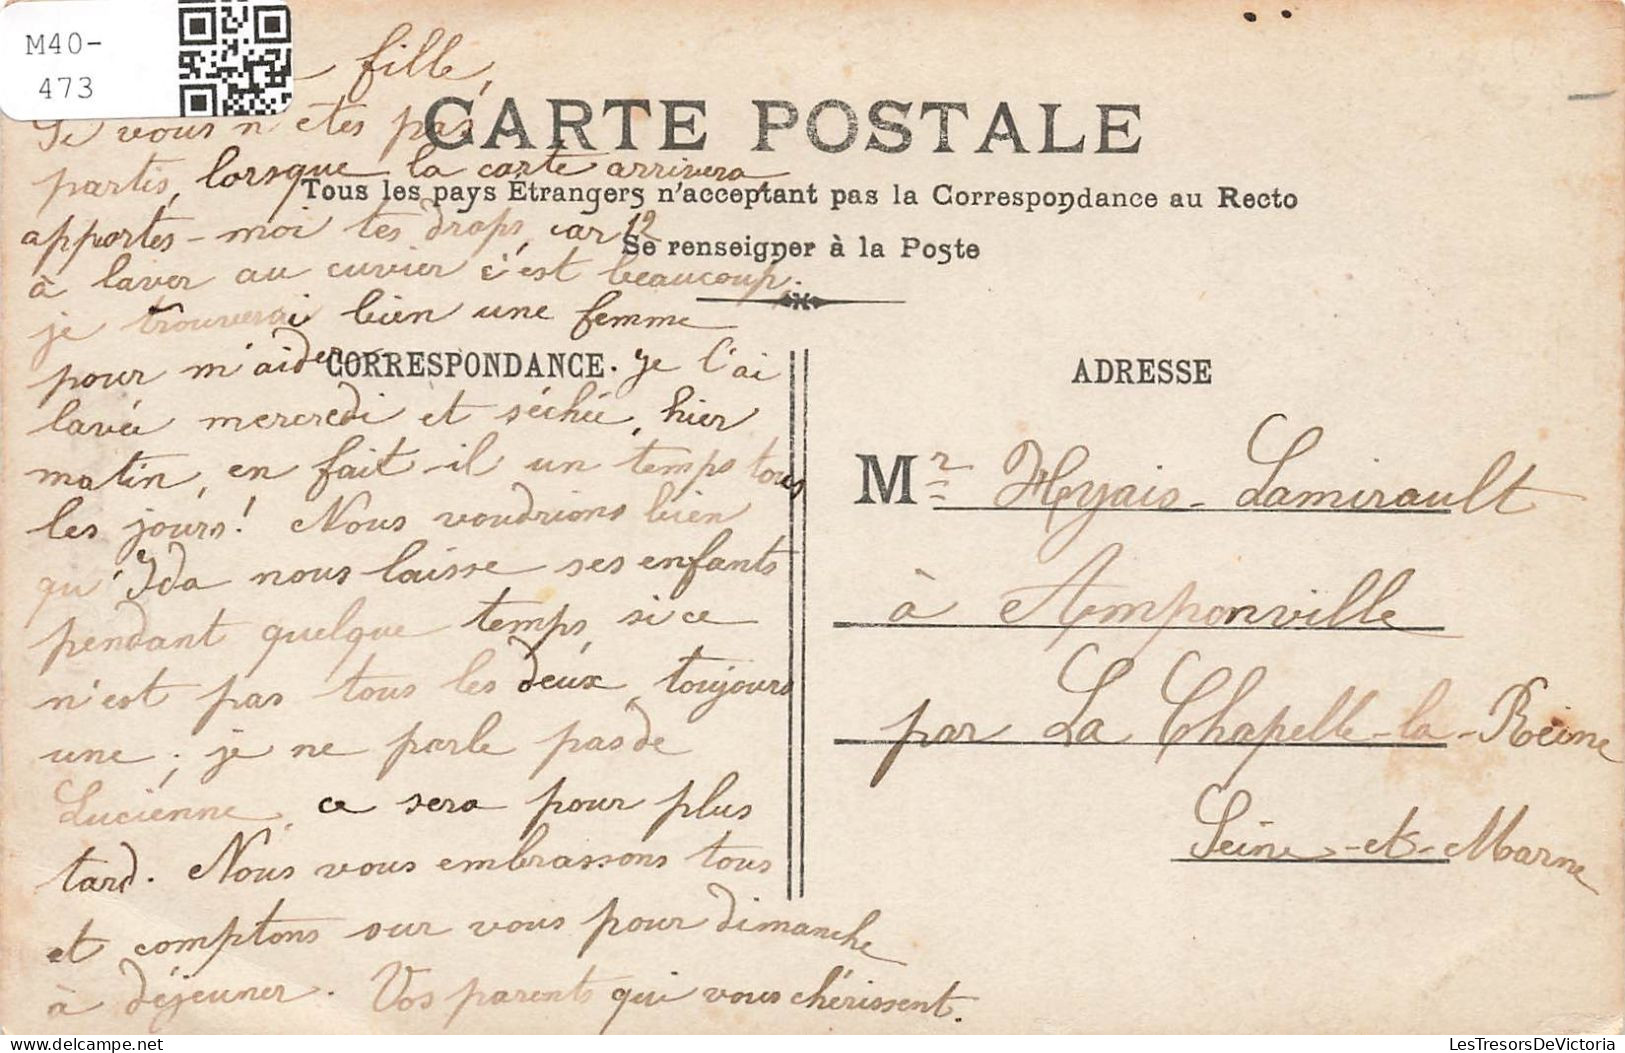 M40-
473
fille,
Si vous n'êtes pas
partis, lorsque la carte arrivera
apportes-moi tes draps, car 12
à laver au cuvier c'est beaucoup,
je trouverai bien une femme
pour m'aider. Je l'ai
lavée mercredi et séchée, hier
matin, en fait-il un temps tous
les jours! Nous voudrions bien
qu'Ida nous laisse ses enfants
pendant quelque temps, si ce
n'est pas tous les deux, toujours
une; je ne parle pas de
Lucienne, ce sera pour plus
tard. Nous vous embrassons tous
et comptons sur vous pour dimanche
à déjeuner. Vos parents qui vous chérissent.
CARTE POSTALE
Tous les pays Étrangers n'acceptant pas la Correspondance au Recto
Se renseigner à la Poste
CORRESPONDANCE.
ADRESSE
Mr Hyais-Lamirault
à Amponville
par La Chapelle-la-Reine
Seine-et-Marne
LesTresorsDeVictoria